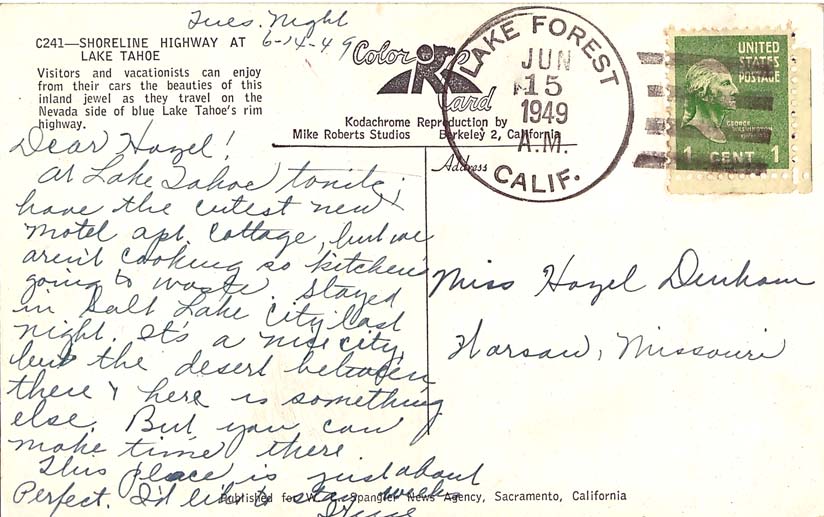 Tues. Night
6-14-49
C241—SHORELINE HIGHWAY AT
LAKE TAHOE
Visitors and vacationists can enjoy
from their cars the beauties of this
inland jewel as they travel on the
Nevada side of blue Lake Tahoe's rim
highway.
Color
Card
Kodachrome Reproduction by
Mike Roberts Studios Berkeley 2, California
LAKE FOREST
JUN
15
1949
A.M.
CALIF.
UNITED
STATES
POSTAGE
GEORGE
WASHINGTON
1 CENT 1
Address
Dear Hazel!
At Lake Tahoe tonite;
have the cutest new
motel apt. cottage, but we
aren't cooking so kitchen's
going to waste. Stayed
in Salt Lake City last
night. It's a nice city,
but the desert between
there & here is something
else. But you can
make time there
This place is just about
Perfect. I'd like to stay weeks
Miss Hazel Denham
Warsaw, Missouri
Published for Spangler News Agency, Sacramento, California